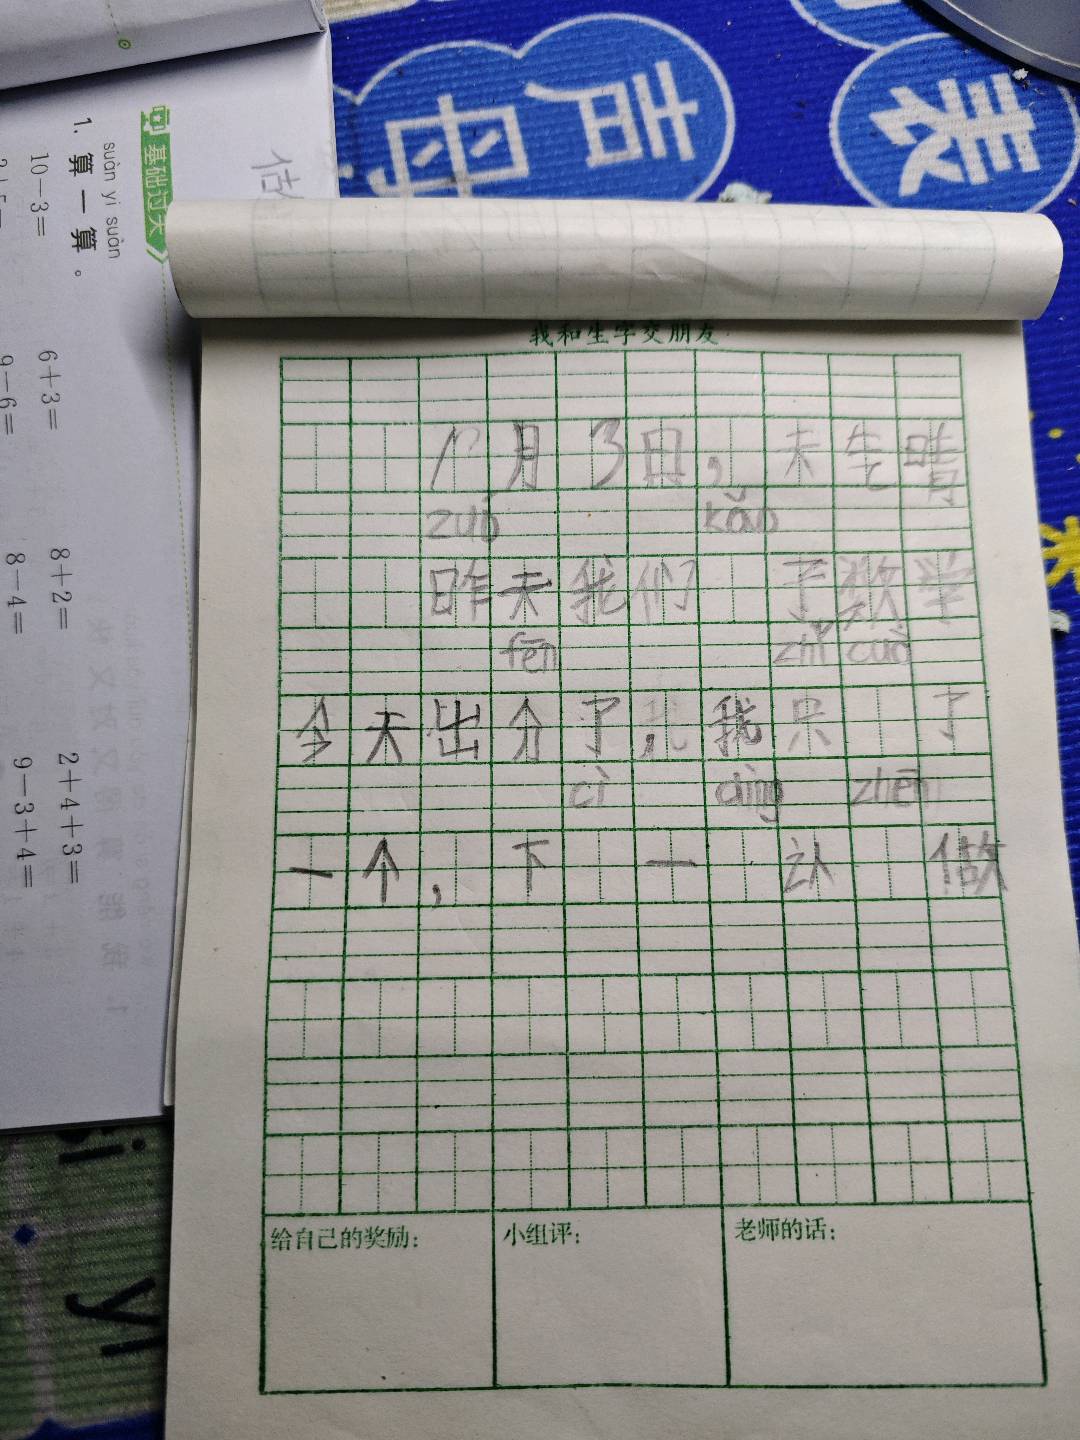 声母
表
基础过关
suàn yi suàn
1. 算一算。
10－3＝
6＋3＝
8＋2＝
2＋4＋3＝
9－6＝
8－4＝
9－3＋4＝
我和生字交朋友
月3日，天气晴
zuó kǎo
昨天我们 了数学
fēn zhǐ cuò
今天出分了，我只 了
cì dìng zhēn
一个，下 一 认 做
给自己的奖励：
小组评：
老师的话：
yi